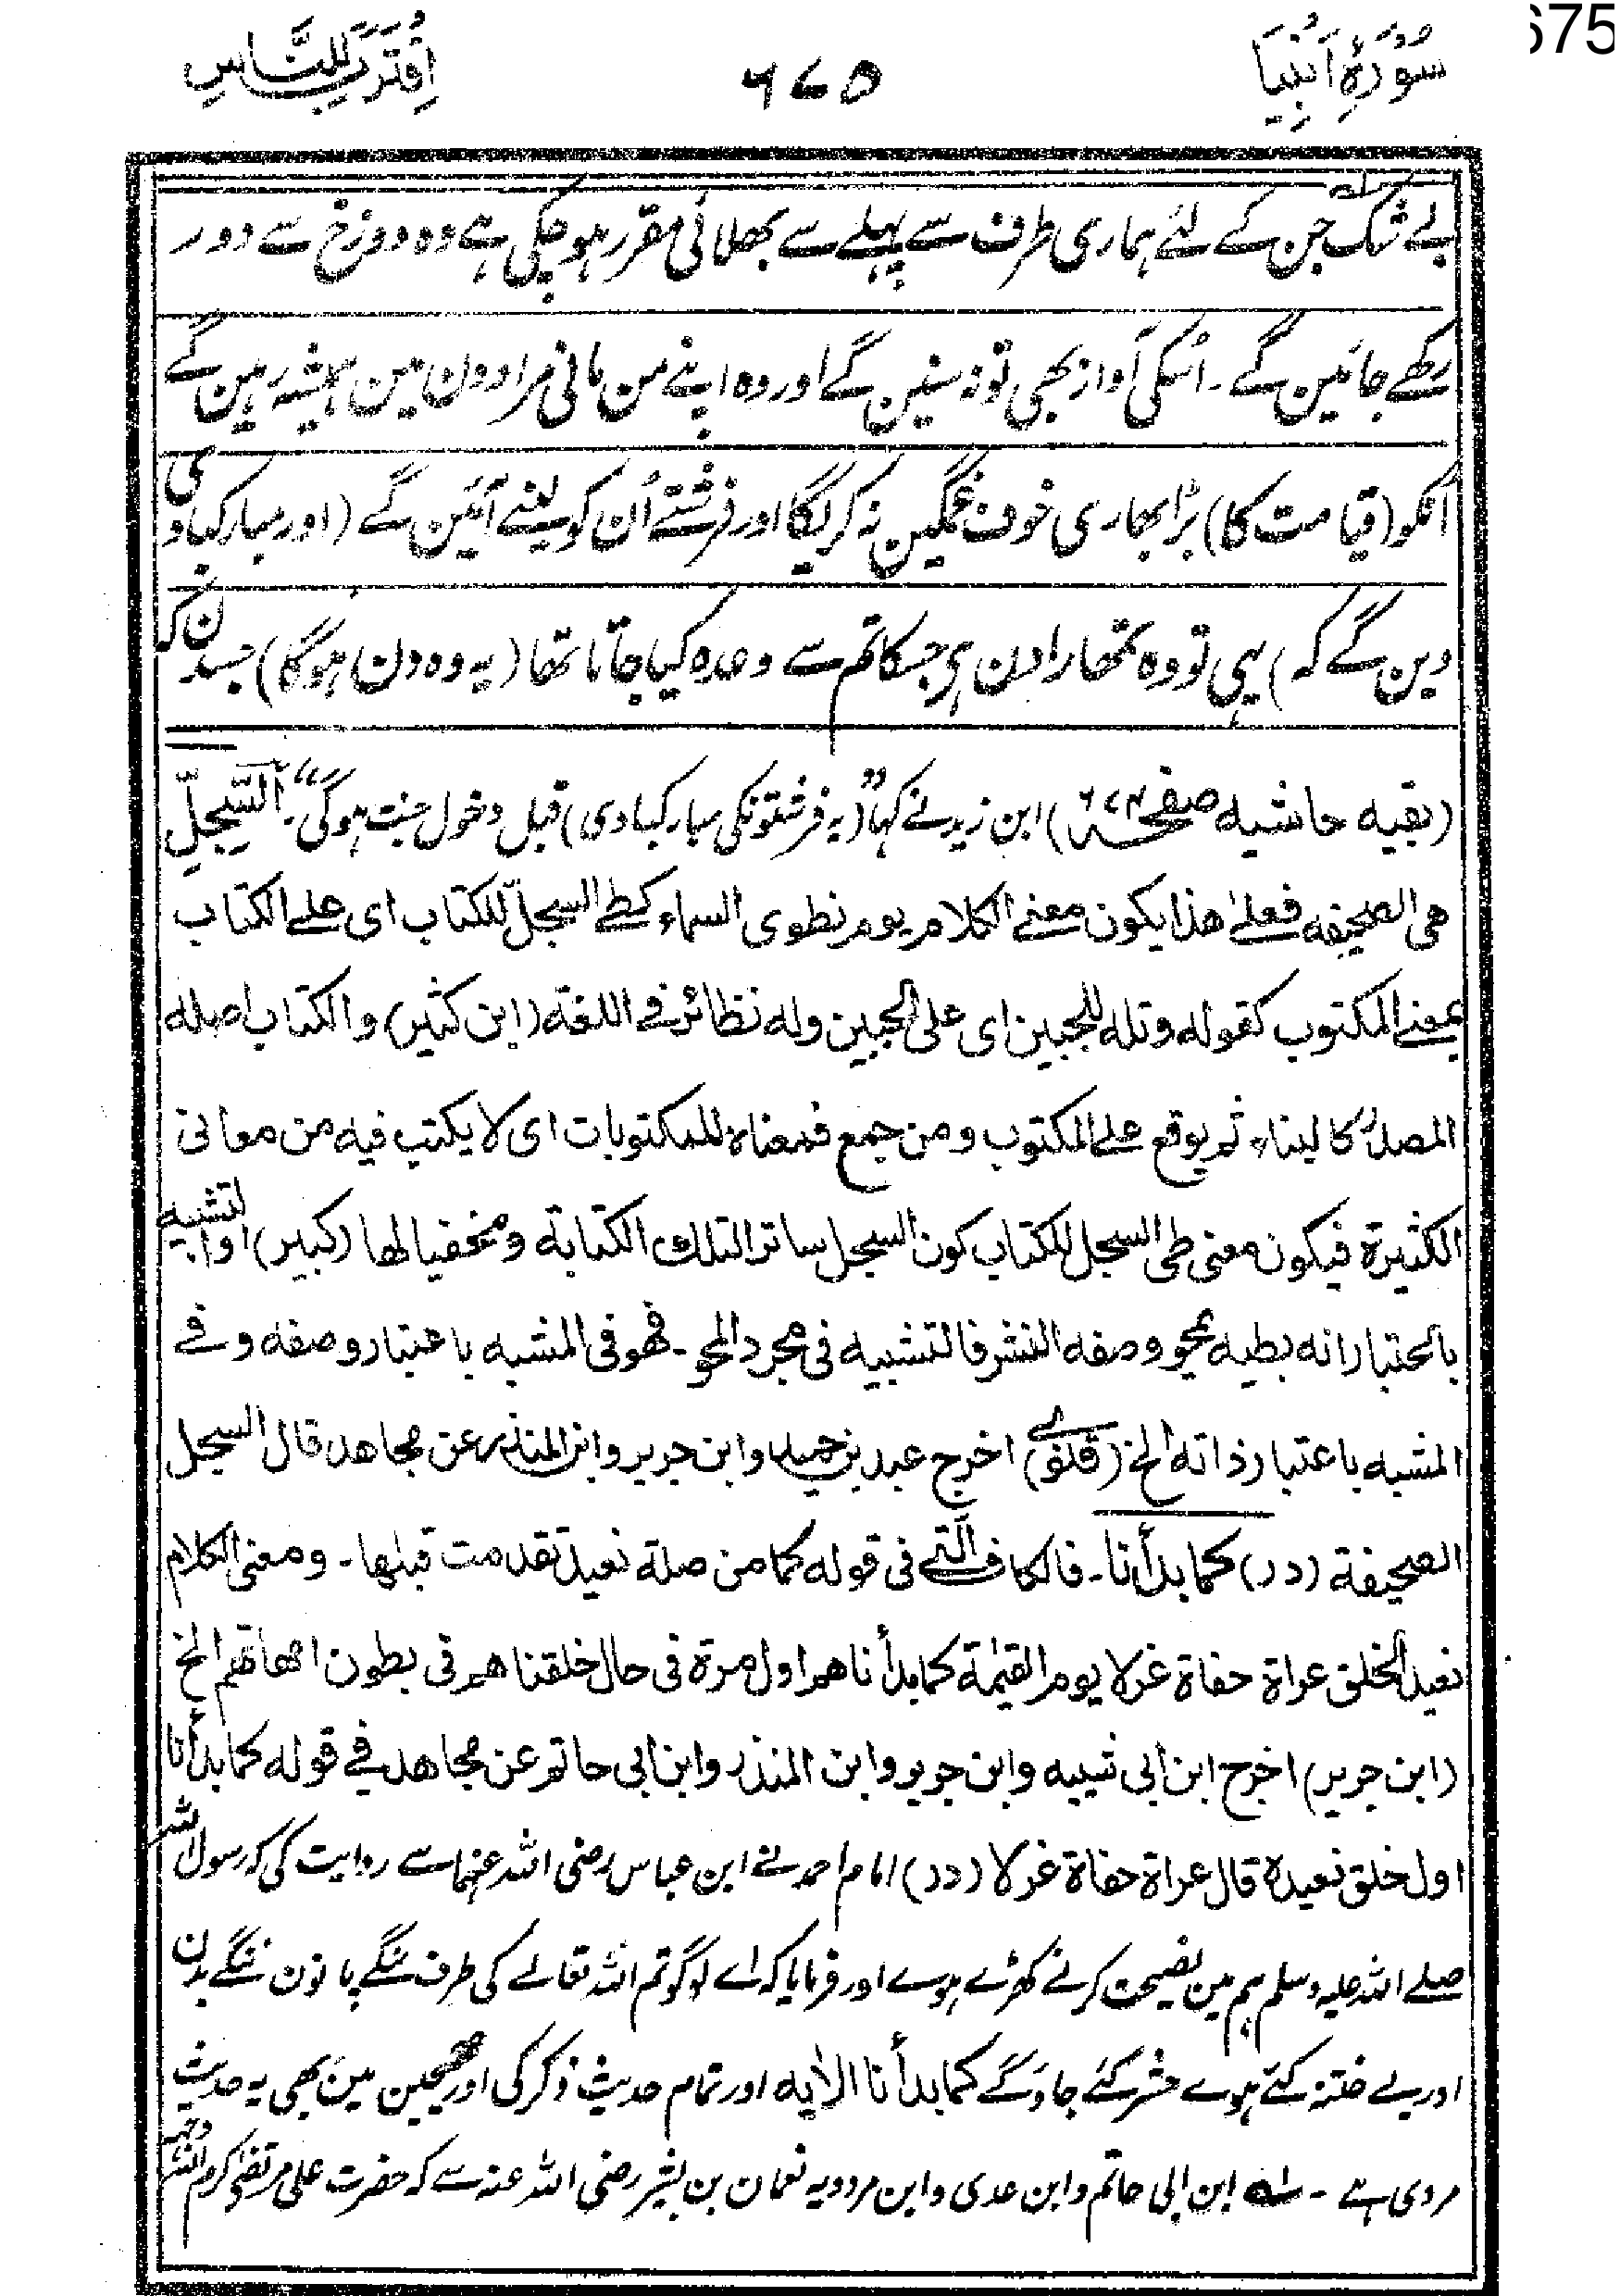 675
سُوْرَۂ اَنْبِیَا ۶۷۵ اِقْتَرَبَ لِلنَّاسِ
بے شک جن کے لئے ہماری طرف سے پہلے سے بھلائی مقرر ہو چکی ہے وہ دوزخ سے دور
رکھے جائین گے ۔ اسکی آواز بھی تو نہ سنین گے اور وہ اپنے من مانی مرادون مین ہمیشہ رہین گے
انکو (قیامت کا) بڑا بھاری خوف غمگین نہ کریگا اور فرشتے اُن کو لینے آئین گے (اور مبارکبادی
دین گے کہ) یہی تو وہ تمھارا دن ہی جسکا تم سے وعدہ کیا جاتا تھا (یہ وہ دن ہوگا) جسدن کہ
(بقیہ حاشیہ صفحہ ۶۷۴) ابن زید نے کہا "(یہ فرشتونکی مبارکبادی) قبل دخول جنت ہوگی"۔ اَلسِّجِلِّ
ھی الصحیفہ فعلےٰ ھذا یکون معنے الکلام یوم نطوی السماء کطے السجلّ للکتاب ای علے الکتاب
بمعنے المکتوب کقولہ وتلہ للجبین ای علی الجبین ولہ نظائر فے اللغۃ (ابن کثیر) و الکتاب اصلہ
المصدر کالبناء ثم یوقع علے المکتوب و من جمع فمعناہ للمکتوبات ای لا یکتب فیہ من معانی
الکثیرۃ فیکون معنی طی السجل للکتاب کون السجل ساترا لتلک الکتابۃ و مخفیا لھا (کبیر) او التشبیہ
باعتبار انہ بطیہ یمحو وصفہ النشر فالتشبیہ فی مجرد المحو ۔ فھو فی المشبہ باعتبار وصفہ و فے
المشبہ باعتبار ذاتہ الخ (قلنوی) اخرج عبد بن حمید و ابن جریر و ابن المنذر عن مجاھد قال السجل
الصحیفۃ (در) کما بدأنا۔ فالکاف الّتے فی قولہ کما من صلۃ نعید تقدمت قبلھا۔ و معنی الکلام
نعید الخلق عراۃ حفاۃ غرلا یوم القیٰمۃ کما بدأناھم اول مرۃ فی حال خلقناھم فی بطون امھاتھم الخ
(ابن جریر) اخرج ابن ابی شیبہ و ابن جریر و ابن المنذر و ابن ابی حاتم عن مجاھد فے قولہ کما بدأنا
اول خلق نعیدہ قال عراۃ حفاۃ غرلا (در) امام احمد نے ابن عباس رضی اللہ عنہما سے روایت کی کہ رسول اللہ
صلے اللہ علیہ وسلم ہم مین نصیحت کرنے کھڑے ہوے اور فرمایا کہ اے لوگو تم اللہ تعالے کی طرف ننگے پانون ننگے بدن
اور بے ختنہ کئے ہوے حشر کئے جاؤگے کما بدأنا الآیہ اور تمام حدیث ذکر کی اور صحیحین مین بھی یہ حدیث
مروی ہے ۔ لہ ابن ابی حاتم و ابن عدی و ابن مردویہ نعمان بن بشیر رضی اللہ عنہ سے کہ حضرت علی مرتضیٰ کرم اللہ وجہہ